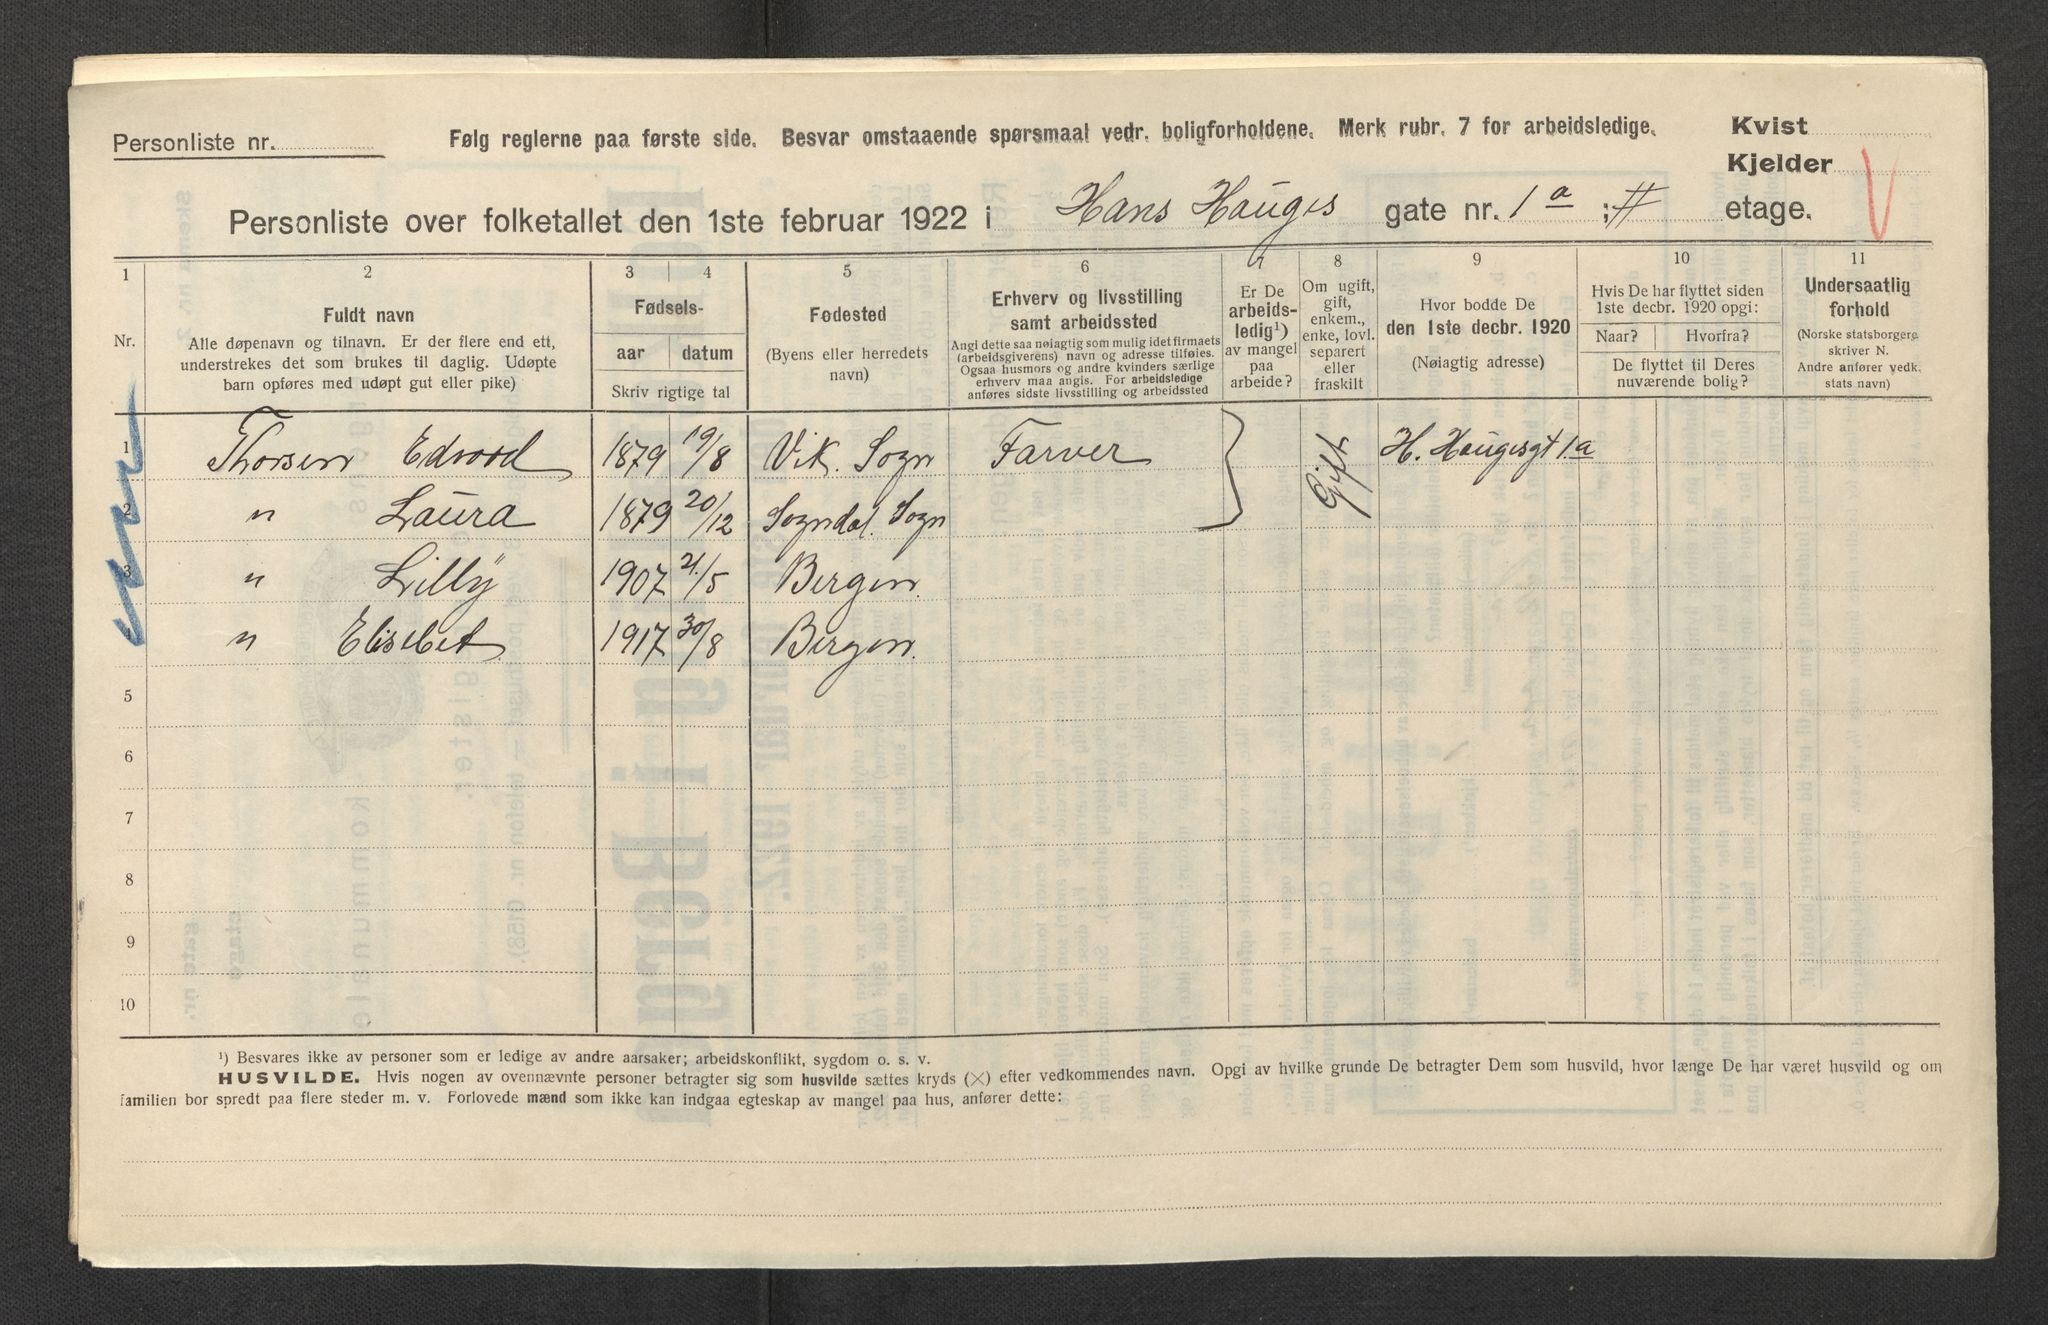 Personliste nr.
Følg reglerne paa første side. Besvar omstaaende spørsmaal vedr. boligforholdene. Merk rubr. 7 for arbeidsledige.
Kvist
Kjelder
Personliste over folketallet den 1ste februar 1922 i Hans Hauges gate nr. 1 a ; II etage.
1 2 3 4 5 6 7 8 9 10 11
Nr.
Fuldt navn
Alle døpenavn og tilnavn. Er der flere end ett,
understrekes det som brukes til daglig. Udøpte
barn opføres med udøpt gut eller pike)
Fødsels-
aar datum
Skriv rigtige tal
Fødested
(Byens eller herredets
navn)
Erhverv og livsstilling
samt arbeidssted
Angi dette saa nøiagtig som mulig idet firmaets
(arbeidsgiverens) navn og adresse tilføies.
Ogsaa husmors og andre kvinders særlige
erhverv maa angis. For arbeidsledige
anføres sidste livsstilling og arbeidssted
Er De
arbeids-
ledig¹)
av mangel
paa
arbeide?
Om ugift,
gift,
enkem.,
enke, lovl.
separert
eller
fraskilt
Hvor bodde De
den 1ste decbr. 1920
(Nøiagtig adresse)
Hvis De har flyttet siden
1ste decbr. 1920 opgi:
Naar? Hvorfra?
De flyttet til Deres
nuværende bolig?
Undersaatlig
forhold
(Norske statsborgere
skriver N.
Andre anfører vedk.
stats navn)
1 Thorsen Edvard 1879 19/8 Vik. Sogn Farver } Gift H. Haugesgt 1a
2 " Laura 1879 20/12 Sogndal. Sogn
3 " Lilly 1907 21/5 Bergen.
4 " Elisebet 1917 30/8 Bergen.
5
6
7
8
9
10
¹) Besvares ikke av personer som er ledige av andre aarsaker; arbeidskonflikt, sygdom o. s. v.
HUSVILDE. Hvis nogen av ovennævnte personer betragter sig som husvilde sættes kryds (×) efter vedkommendes navn. Opgi av hvilke grunde De betragter Dem som husvild, hvor længe De har været husvild og om
familien bor spredt paa flere steder m. v. Forlovede mænd som ikke kan indgaa egteskap av mangel paa hus, anfører dette: